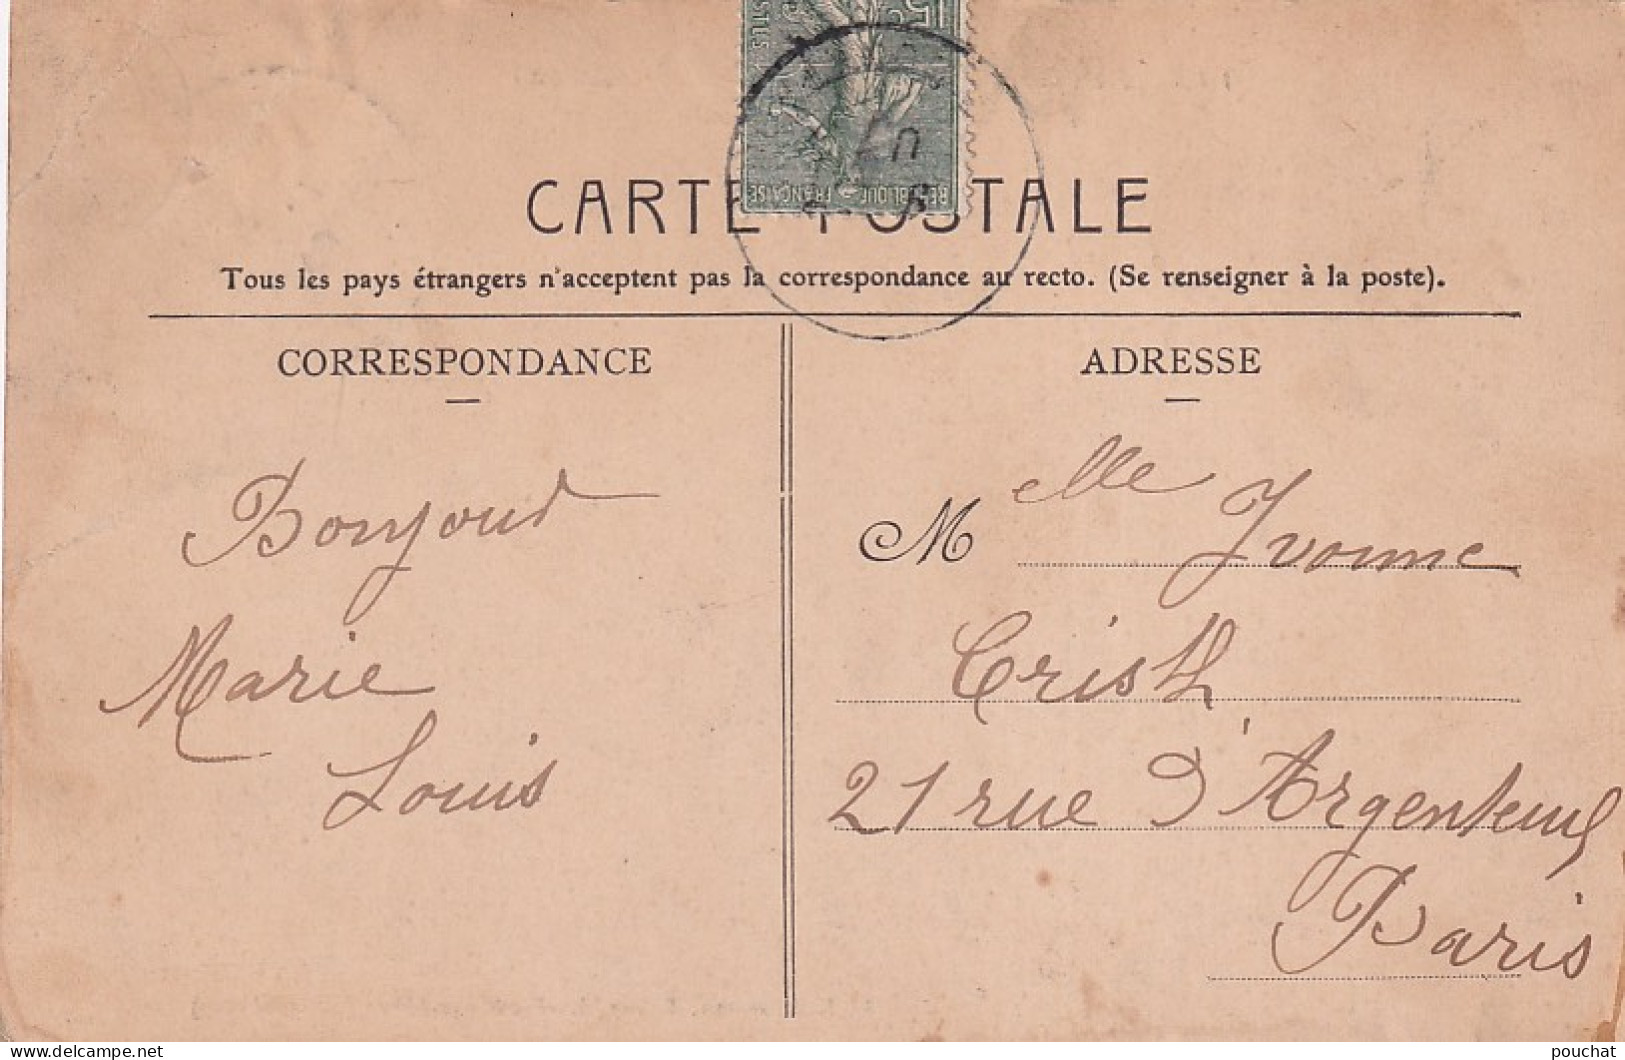 15c
POSTES
RÉPUBLIQUE FRANÇAISE
CARTE POSTALE
Tous les pays étrangers n'acceptent pas la correspondance au recto. (Se renseigner à la poste).
CORRESPONDANCE
Bonjour
Marie
Louis
ADRESSE
Melle Yvonne
Cristh
21 rue d'Argenteuil
Paris
delcampe.net
pouchat